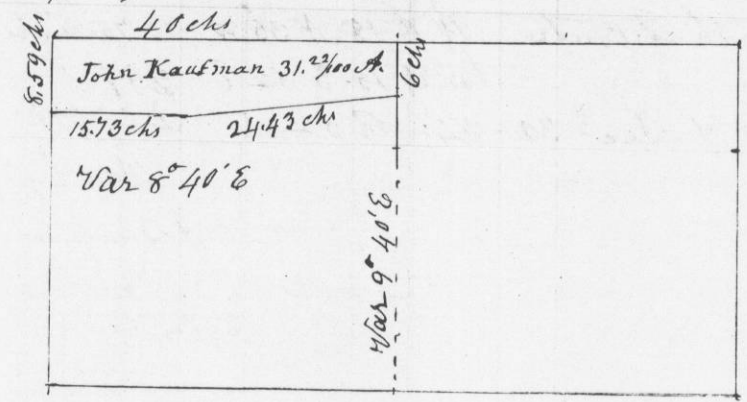 40 chs
8.59 chs
John Kaufman 31.22/100 A.
6 chs
15.73 chs
24.43 chs
Var 8° 40' E
Var 9° 40' E